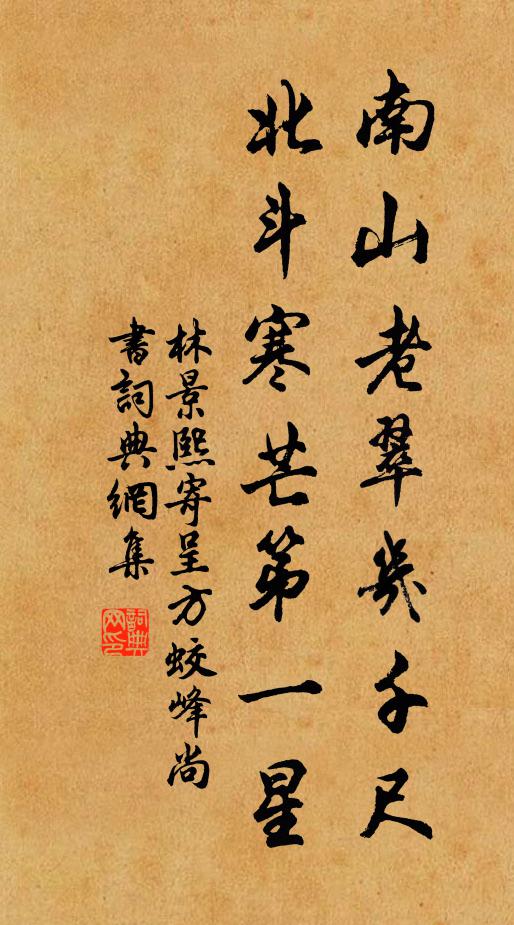 南山老翠幾千尺
北斗寒芒第一星
林景熙寄呈方蛟峰尚
書詞典網集
詞典
网印